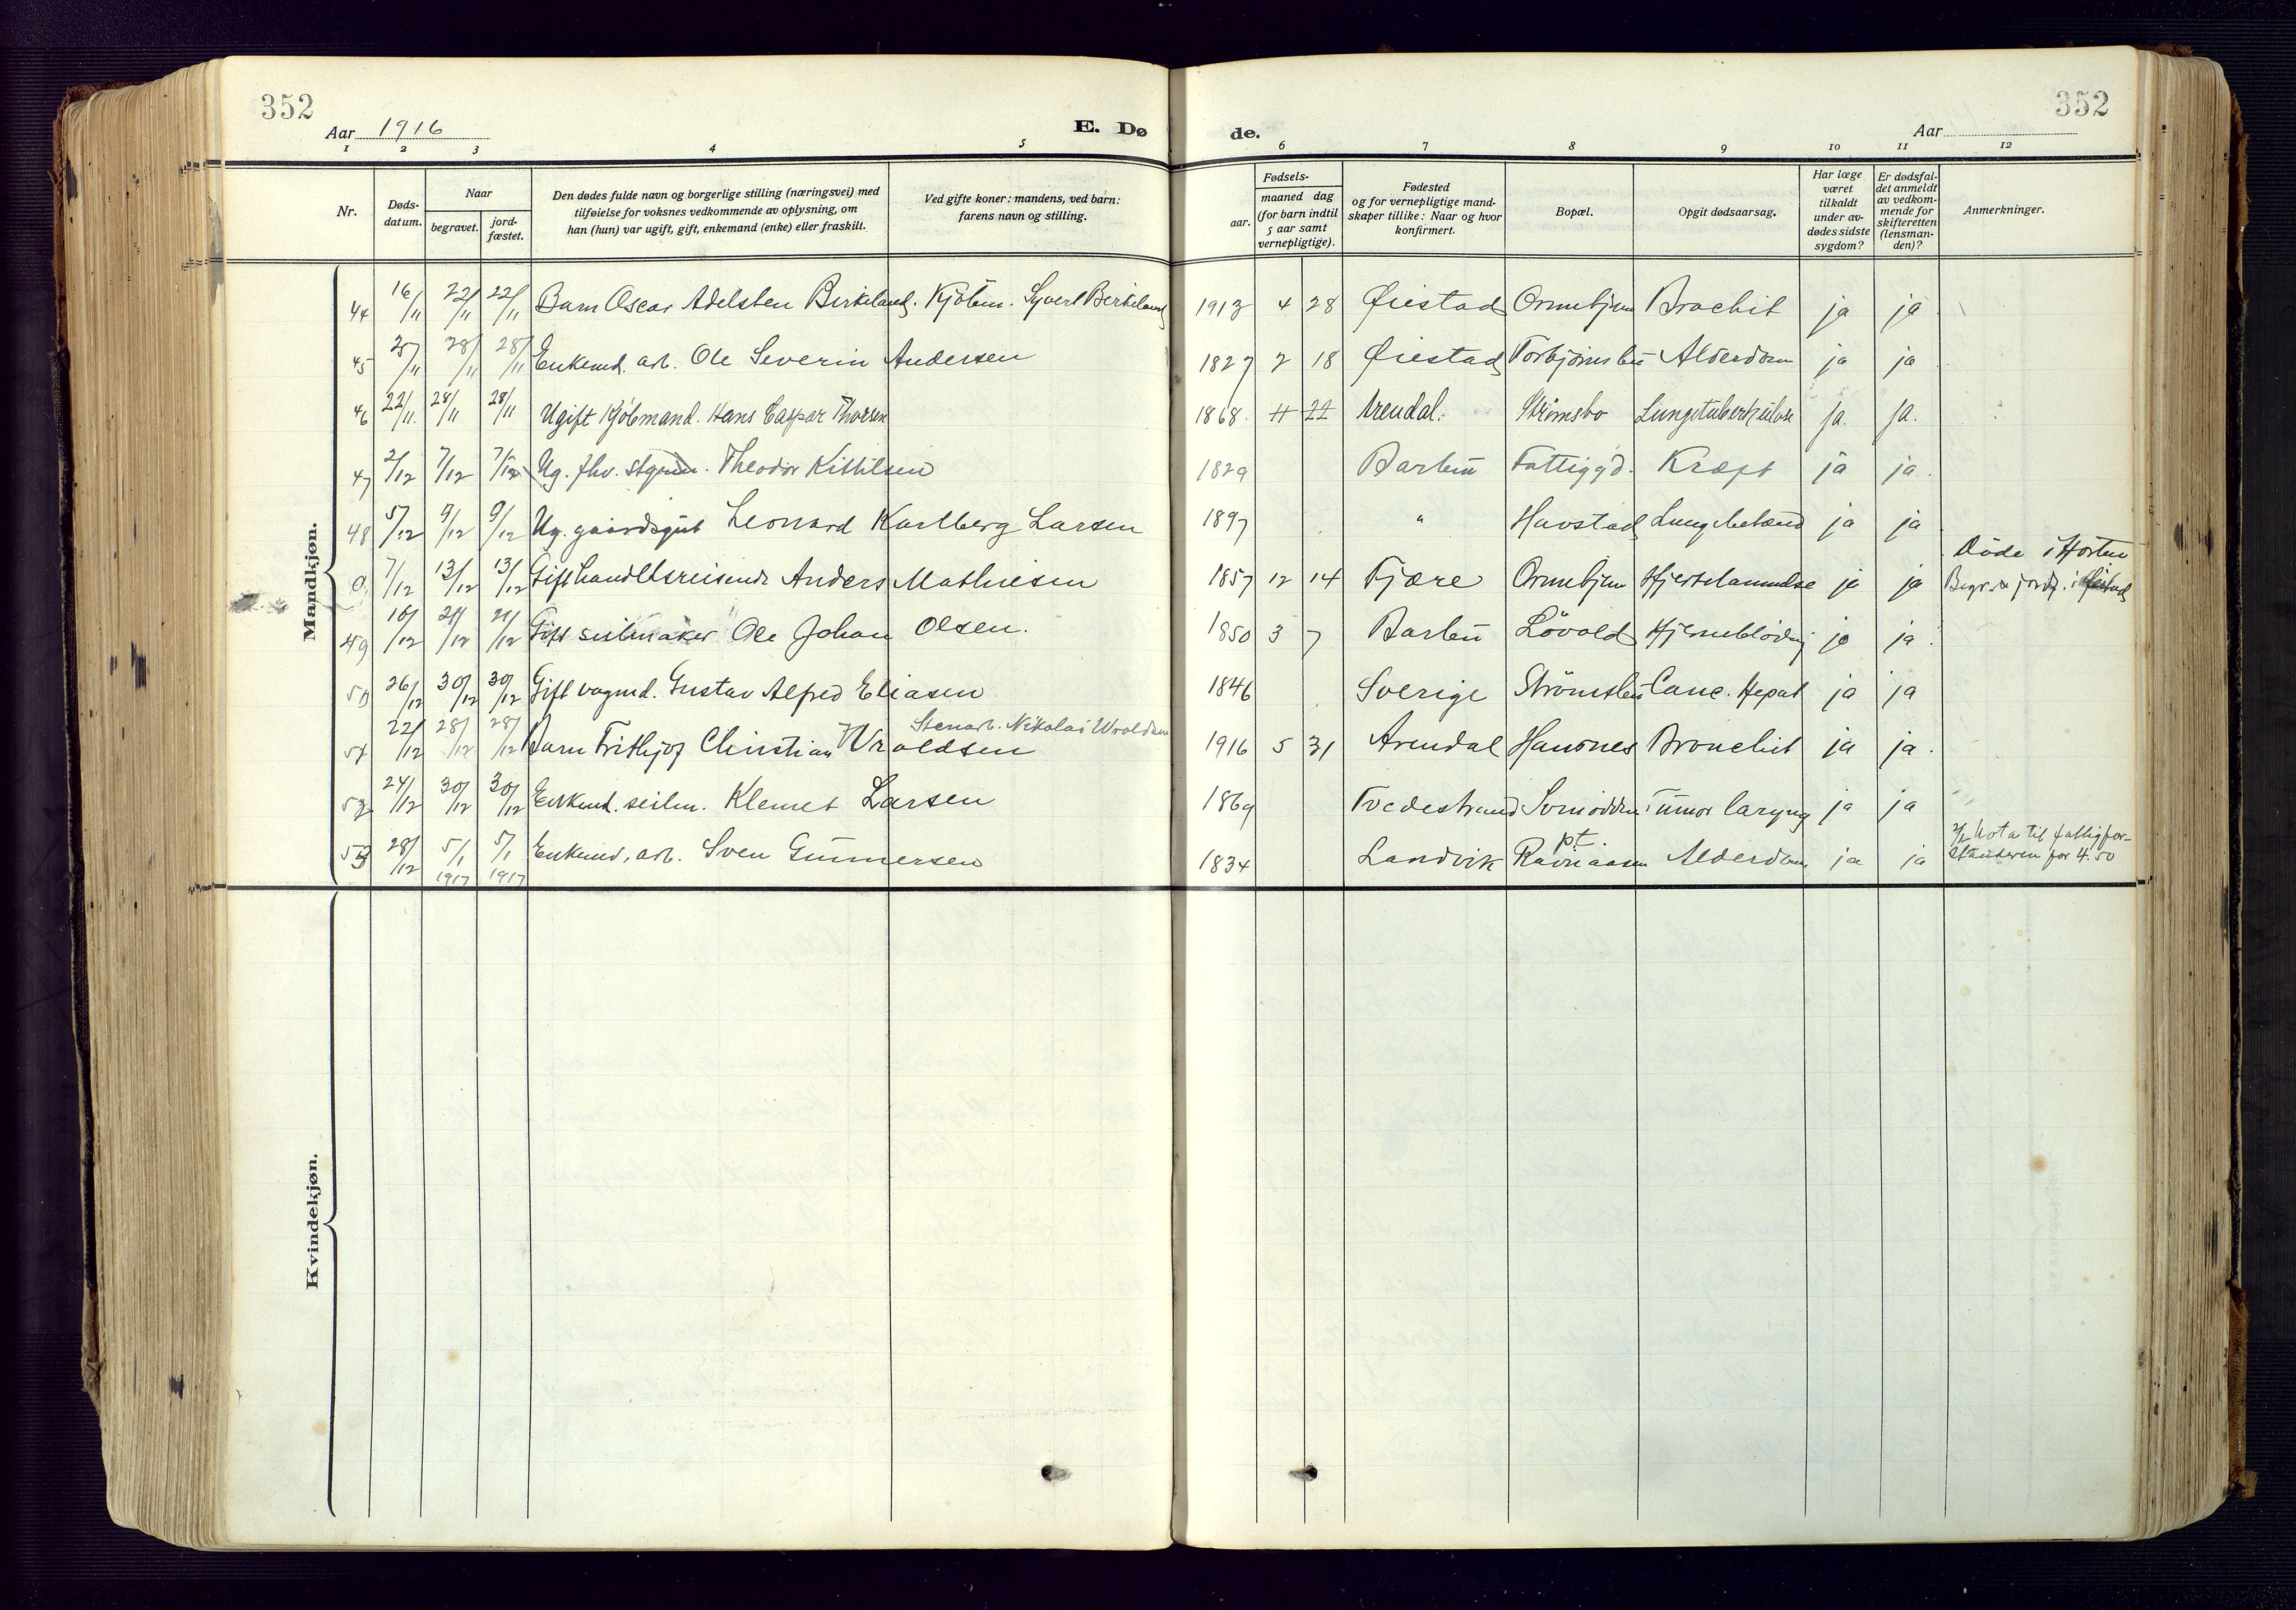 352
352
Aar 1916
E. Dø
de.
Aar
1 2 3 4 5 6 7 8 9 10 11 12
Nr.
Døds-
datum.
Naar
begravet.
jord-
fæstet.
Den dødes fulde navn og borgerlige stilling (næringsvei) med
tilføielse for voksnes vedkommende av oplysning, om
han (hun) var ugift, gift, enkemand (enke) eller fraskilt.
Ved gifte koner: mandens, ved barn:
farens navn og stilling.
Fødsels-
aar.
maaned dag
(for barn indtil
5 aar samt
vernepligtige).
Fødested
og for vernepligtige mand-
skaper tillike: Naar og hvor
konfirmert.
Bopæl.
Opgit dødsaarsag.
Har læge
været
tilkaldt
under av-
dødes sidste
sygdom?
Er dødsfal-
det anmeldt
av vedkom-
mende for
skifteretten
(lensman-
den)?
Anmerkninger.
Mandkjøn.
44 16/11 22/11 22/11 Barn Oscar Adelsten Birkeland. Kjøbm. Syvert Birkeland 1913 4 28 Øiestad Brochit ja ja
45 28/11 28/11 Enkemd. arb. Ole Severin Andersen 1827 2 18 Øiestad Torbjørnsbu Alderdom ja ja
46 22/11 28/11 28/11 Ugift Kjøbmand. Hans Caspar Thorsen 1868. 11 22 Arendal. Strømsbo Lungetuberkulose ja. ja.
47 2/12 7/12 7/12 Ug. fhv. Theodor Kittilsen 1829 Barbu Fattiggd. Kræft ja ja.
48 5/12 9/12 9/12 Ug. gaardsgut Leonard Karlberg Larsen 1897 " Havstad Lungebetænd ja ja
0. 7/12 13/12 13/12 Gift handelsreisende Anders Mathiesen 1857 12 14 Fjære Hjertelammelse ja ja Døde i Horten
Begr. & jordf. i Øiestad
49 16/12 21/12 21/12 Gift seilmaker Ole Johan Olsen. 1850 3 7 Barbu Løvold Hjerneblødnig ja ja.
50 26/12 30/12 30/12 Gift vognmd. Gustav Alfred Eliasen 1846 Sverige Strømsbu Canc. Hepat ja ja
Stenarb. Nikolai Wroldsen
51 22/12 28/12 28/12 Barn Frithjof Christian Wroldsen 1916 5 31 Arendal Bronchit ja ja.
52 24/12 30/12 30/12 Enkemd. seilm. Klemet Larsen 1869 Tvedestrand Tumor laryng ja ja
53 28/12 5/1 1917 5/1 1917 Enkemd. arb. Sven Gunnersen 1834 Landvik pt. Ravnaasen Alderdom ja ja 2/1 Nota til fattigfor-
standeren for 4.50
Kvindekjøn.